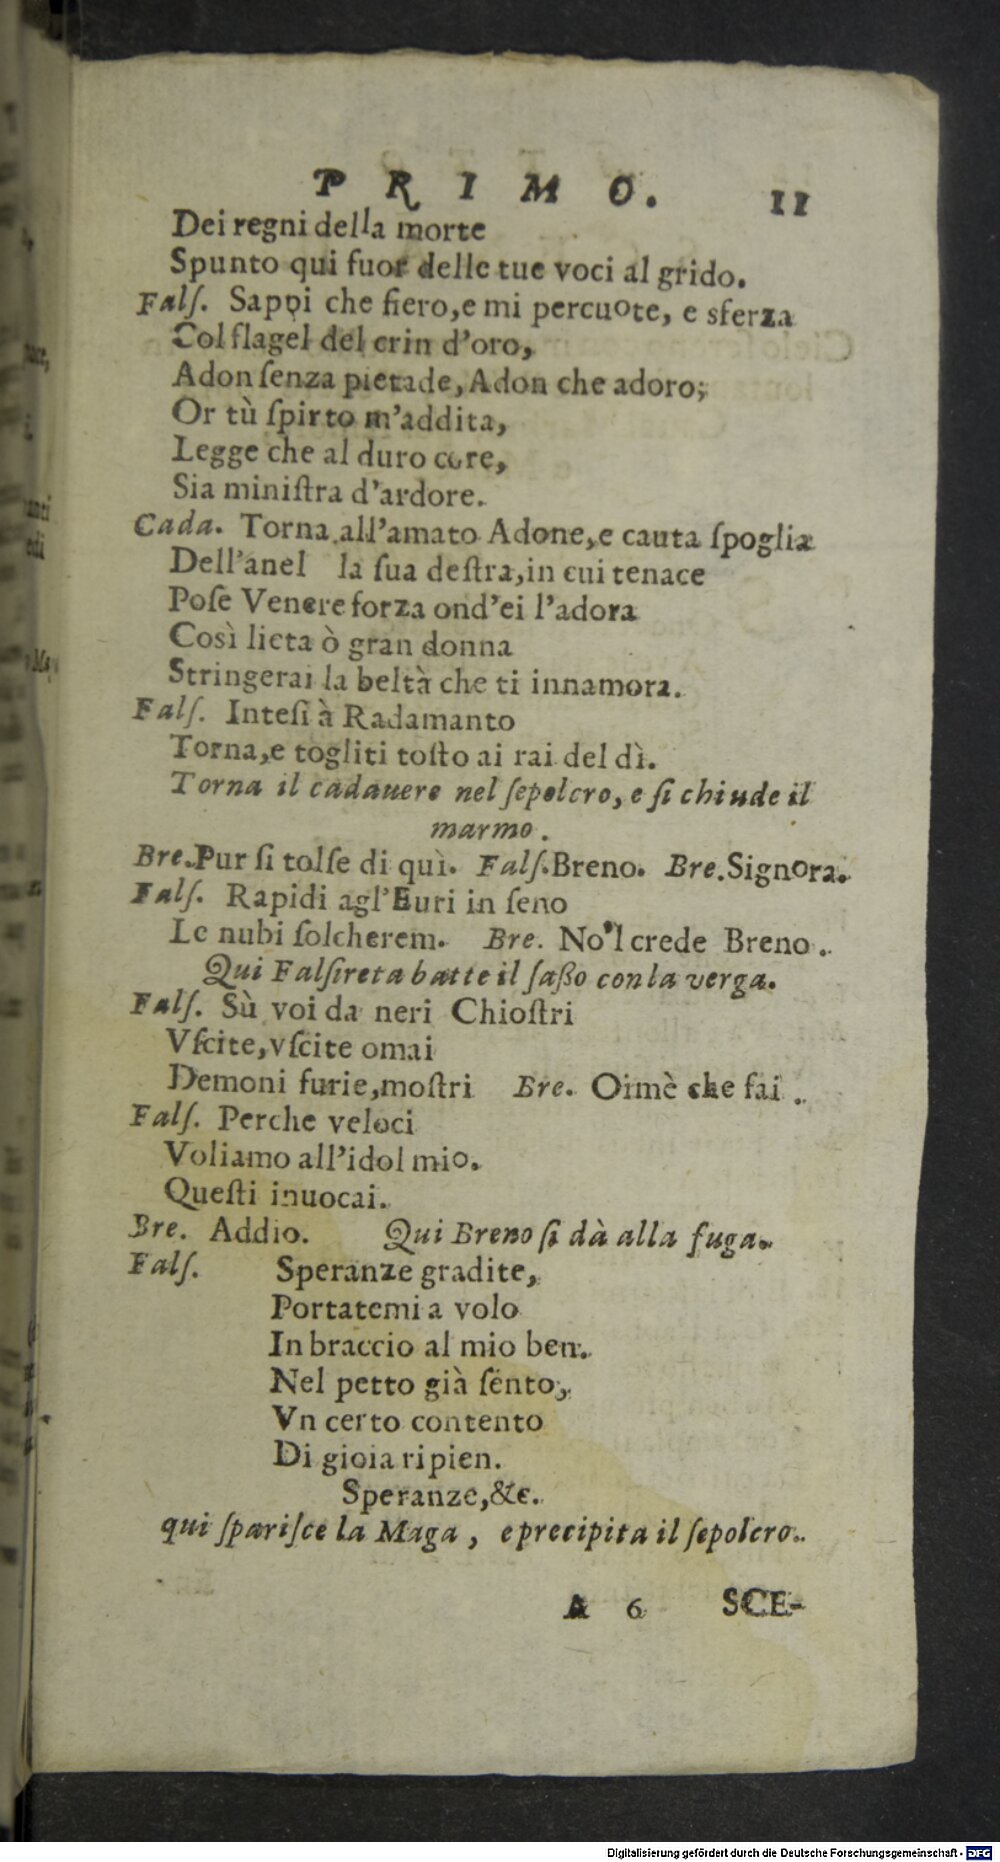 PRIMO. 11
Dei regni della morte
Spunto qui fuor delle tue voci al grido.
Falſ. Sappi che fiero,e mi percuote, e sferza
Col flagel del crin d'oro,
Adon ſenza pietade, Adon che adoro;
Or tù ſpirto m'addita,
Legge che al duro core,
Sia miniſtra d'ardore.
Cada. Torna all'amato Adone,e cauta ſpoglia
Dell'anel la ſua deſtra,in cui tenace
Poſe Venere forza ond'ei l'adora
Così lieta ò gran donna
Stringerai la beltà che ti innamora.
Falſ. Inteſi à Radamanto
Torna,e togliti toſto ai rai del dì.
Torna il cadauere nel ſepolcro, e ſi chiude il
marmo.
Bre.Pur ſi tolſe di quì. Falſ.Breno. Bre.Signora.
Falſ. Rapidi agl'Euri in ſeno
Le nubi ſolcherem. Bre. No'l crede Breno.
Qui Falſireta batte il ſaßo con la verga.
Falſ. Sù voi da neri Chioſtri
Vſcite,vſcite omai
Demoni furie,moſtri Bre. Oimè che fai.
Falſ. Perche veloci
Voliamo all'idol mio.
Queſti inuocai.
Bre. Addio. Qui Breno ſi dà alla fuga.
Falſ. Speranze gradite,
Portatemi a volo
In braccio al mio ben.
Nel petto già ſento,
Vn certo contento
Di gioia ripien.
Speranze,&c.
qui ſpariſce la Maga, e precipita il ſepolcro.
A 6 SCE-
Digitalisierung gefördert durch die Deutsche Forschungsgemeinschaft - DFG